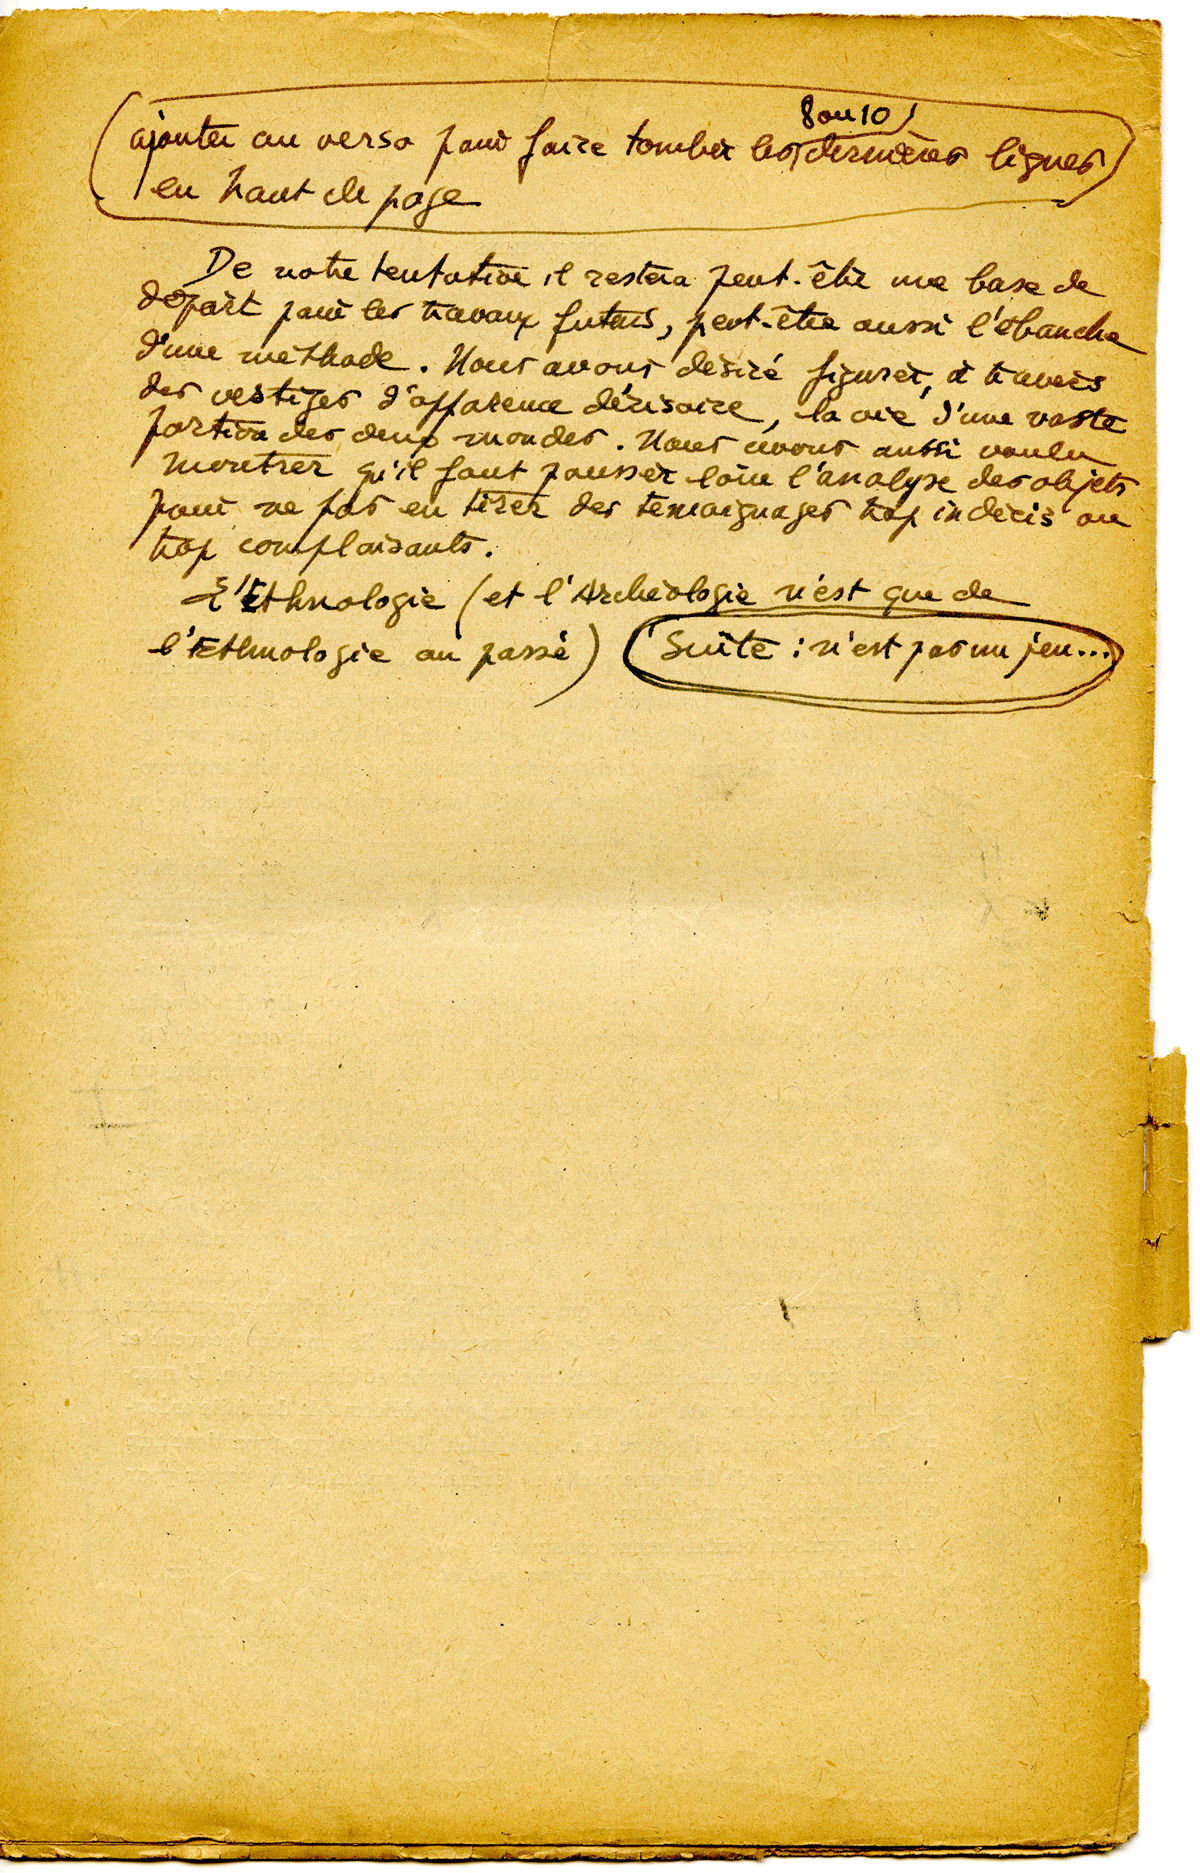 8 ou 10
ajouter au verso pour faire tomber les dernières lignes
en haut de page
De notre tentative il restera peut-être une base de
départ pour les travaux futurs, peut-être aussi l'ébauche
d'une méthode. Nous avons désiré figurer, à travers
des vestiges d'apparence dérisoire, la vie d'une vaste
portion des deux mondes. Nous avons aussi voulu
montrer qu'il faut pousser loin l'analyse des objets
pour ne pas en tirer des témoignages trop indécis ou
trop complaisants.
L'Ethnologie (et l'Archéologie n'est que de
l'Ethnologie au passé) (Suite : n'est pas un jeu...)